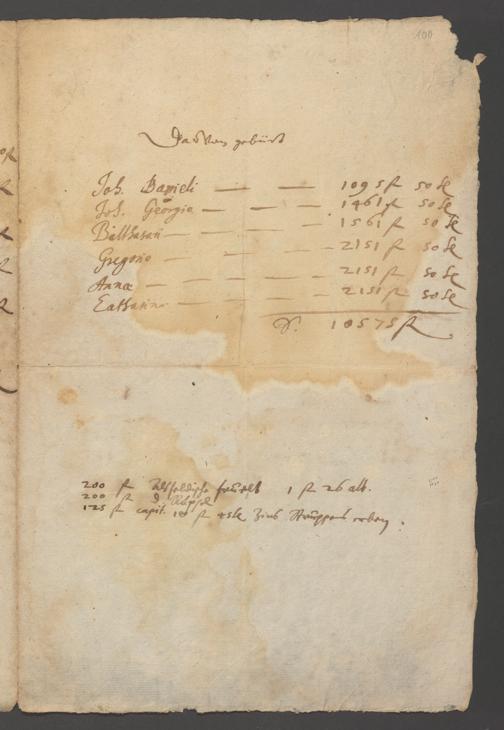 100
Davon gebürt
Joh. Danieli — — 1095 fl 50 k
Joh. Georgio — — 1461 fl 50 k
Balthasari — — 1561 fl 50 k
Gregorio — — 2151 fl 50 k
Annæ — — 2151 fl 50 k
Catharinæ — — 2151 fl 50 k
S. 10575 fl
200 fl 1 fl 26 alb.
200 fl
125 fl capit. fl Zins erben.